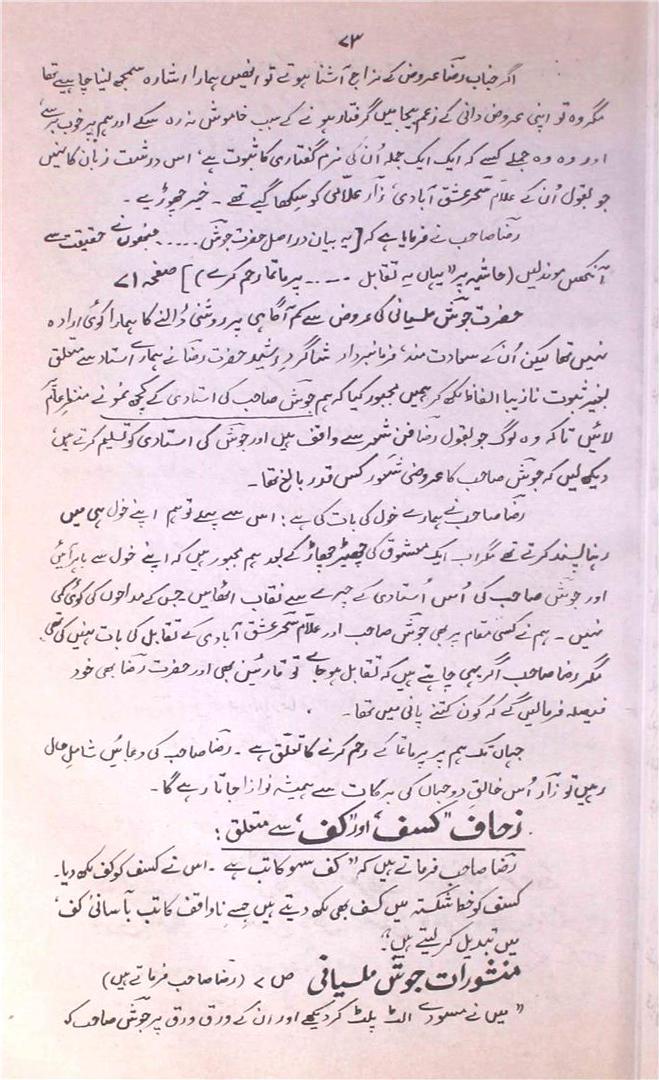 ۷۳
اگر جناب رضا عروض کے مزاج آشنا ہوتے تو انھیں ہمارا اشارہ سمجھ لینا چاہیے تھا
مگر وہ تو اپنی عروض دانی کے زعمِ بیجا میں گرفتار ہونے کے سبب خاموش نہ رہ سکے اور ہم پر خوب برسے
اور وہ وہ جملے کسے کہ ایک ایک جملہ اُن کی نرم گفتاری کا ثبوت ہے، اس درشت زبان کا نہیں
جو بقول اُن کے علامہ سحر عشق آبادی، زار علامی کو سکھا گئے تھے ۔ خیر چھوڑیے ۔
رضا صاحب نے فرمایا ہے کہ [یہ بیان دراصل حضرت جوش ..... جنھوں نے حقیقت سے
آنکھیں موند لیں (حاشیہ پر "یہاں یہ تقابل ..... پرماتما رحم کرے)] صفحہ ۷۱
حضرت جوش ملسیانی کی عروض سے کم آگاہی پر روشنی ڈالنے کا ہمارا کوئی ارادہ
نہیں تھا لیکن اُن کے سعادت مند، فرمانبردار شاگردِ رشید حضرت رضا نے ہمارے استاد سے متعلق
بغیر ثبوت نازیبا الفاظ لکھ کر ہمیں مجبور کیا کہ ہم جوش صاحب کی استادی کے کچھ نمونے منظرِ عام پر
لائیں تاکہ وہ لوگ جو بقول رضا فنِ شعر سے واقف ہیں اور جوش کی استادی کو تسلیم کرتے ہیں،
دیکھ لیں کہ جوش صاحب کا عروضی شعور کس قدر بالغ تھا ۔
رضا صاحب نے ہمارے خول کی بات کی ہے؛ اس سے پہلے تو ہم اپنے خول ہی میں
رہنا پسند کرتے تھے مگر اب ایک معشوق کی چھیڑ چھاڑ کے بعد ہم مجبور ہیں کہ اپنے خول سے باہر آئیں
اور جوش صاحب کی اُس اُستادی کے چہرے سے نقاب اٹھائیں جس کے مداحوں کی کوئی کمی
نہیں ۔ ہم نے کسی مقام پر بھی جوش صاحب اور علامہ سحر عشق آبادی کے تقابل کی بات نہیں کی تھی
مگر رضا صاحب اگر یہی چاہتے ہیں کہ تقابل ہو جائے تو قارئین بھی اور حضرت رضا بھی خود
فیصلہ فرمالیں گے کہ کون کتنے پانی میں تھا ۔
جہاں تک ہم پر پرماتما کے رحم کرنے کا تعلق ہے ۔ رضا صاحب کی دعائیں شاملِ حال
رہیں تو زار اُس خالقِ دوجہاں کی برکات سے ہمیشہ نوازا جاتا رہے گا ۔
زحاف "کسف" اور "کف" سے متعلق :
رضا صاحب فرماتے ہیں کہ "کف سہو کاتب ہے ۔ اس نے کسف کو کف لکھ دیا ۔
کسف کو خطِ شکستہ میں کسف بھی لکھ دیتے ہیں جسے ناواقف کاتب بآسانی 'کف'
میں تبدیل کر لیتے ہیں"
منشورات جوش ملسیانی ص ۷ (رضا صاحب فرماتے ہیں)
"میں نے مسودے الٹ پلٹ کر دیکھے اور ان کے ورق ورق پر جوش صاحب کہ